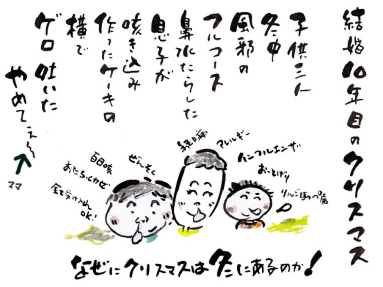 結婚10年目のクリスマス
子供三人
冬中
風邪の
フルコース
鼻水たらした
息子が
咳き込み
作ったケーキの
横で
ゲロ吐いた
やめてぇ〜
ママ
百日咳
おたふくかぜ
ぜんそく
アレルギー
インフルエンザ
おっとげり
リンゴほっぺ病
なぜにクリスマスは冬にあるのか!